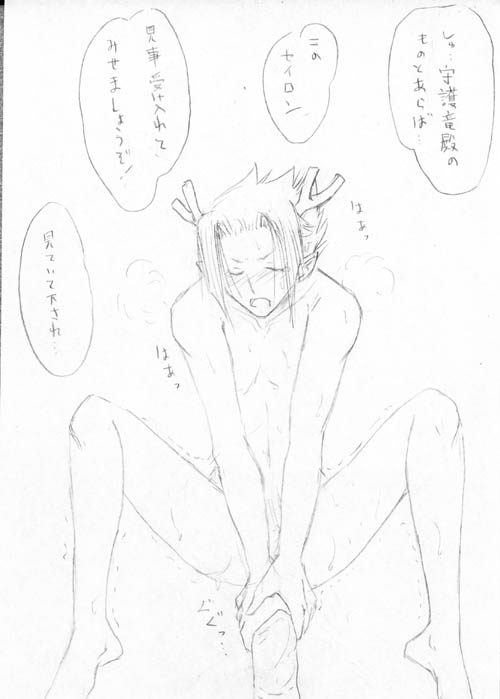 しゅ…守護竜殿の
ものとあらば…
この
セイロン
見事受け入れて、
みせましょうぞ!
見ていて下され…
はぁっ
はぁっ
ぐぐっ…